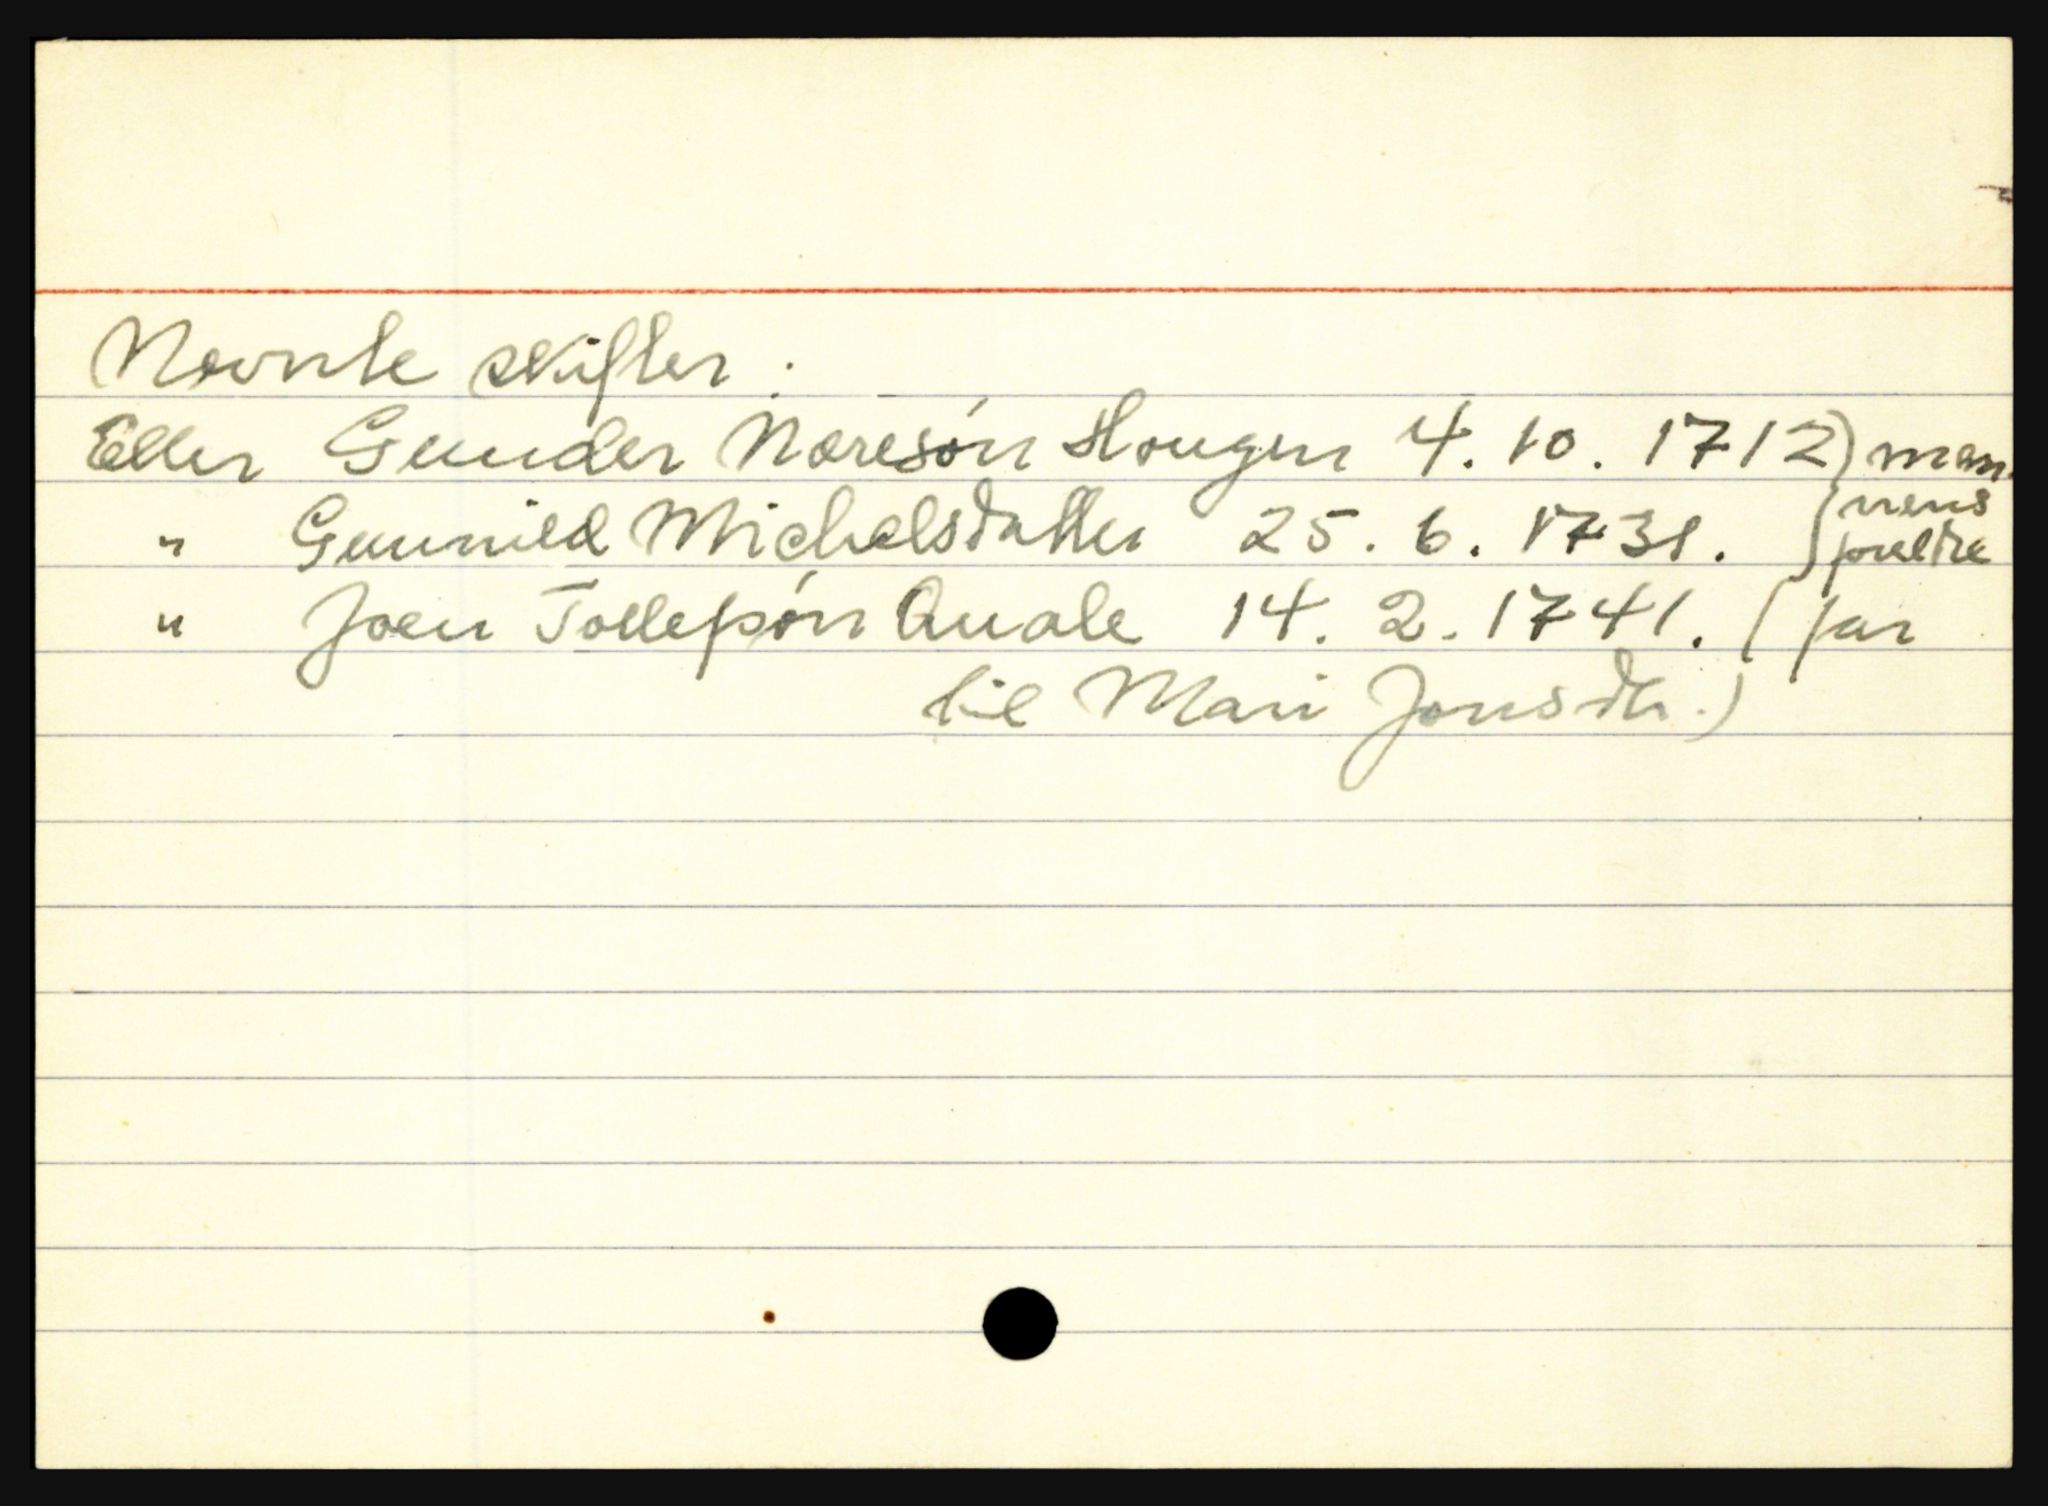 Nevnte skifter:
Etter Gunder Naresón Hougen 4. 10. 1712) man-
" Gunnild Michelsdatter 25. 6. 1731. } nens foreldre
" Joen Tollefsón Quale 14. 2. 1741. (far
til Mari Jonsdtr.)